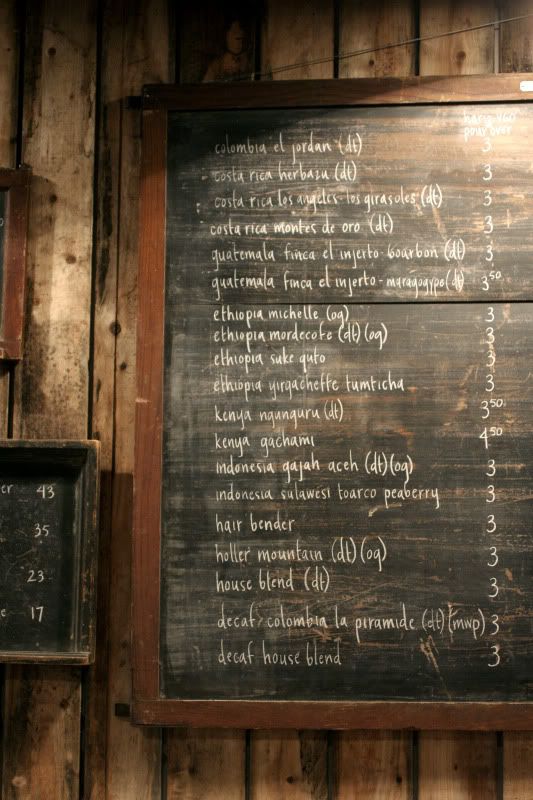 hario v60
pour over
colombia el jordan (dt) 3
costa rica herbazu (dt) 3
costa rica los angeles - los girasoles (dt) 3
costa rica montes de oro (dt) 3
guatemala finca el injerto - bourbon (dt) 3
guatemala finca el injerto - maragogype (dt) 3 50
ethiopia michelle (og) 3
ethiopia mordecofe (dt) (og) 3
ethiopia suke quto 3
ethiopia yirgacheffe tumticha 3
kenya ngunguru (dt) 3 50
kenya gachami 4 50
indonesia gajah aceh (dt) (og) 3
indonesia sulawesi toarco peaberry 3
hair bender 3
holler mountain (dt) (og) 3
house blend (dt) 3
decaf colombia la piramide (dt) (mwp) 3
decaf house blend 3
er 43
35
23
e 17